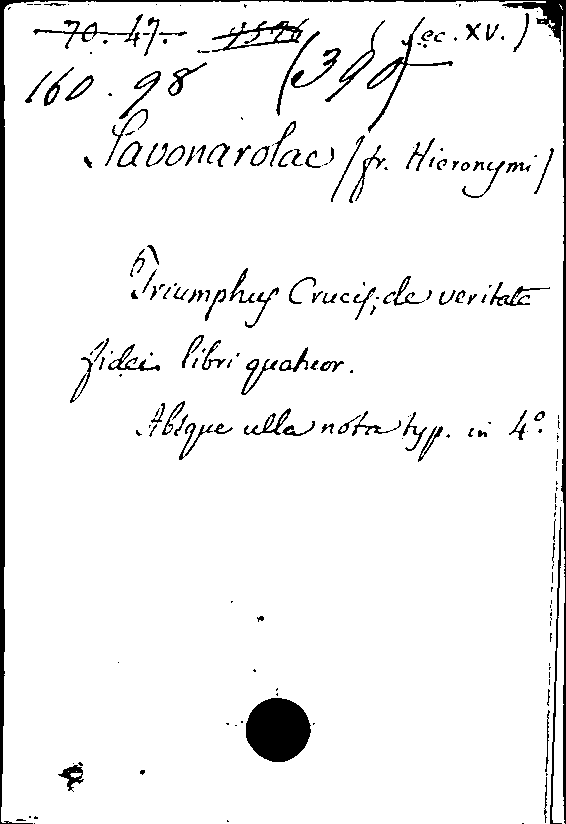 70. 47. 7576 (Sec. XV.)
160. 98 (390)
Savonarolae (fr. Hieronymi)
Triumphus Crucis; de veritate
fidei libri quatuor.
Absque ulla nota typ. in 4º.